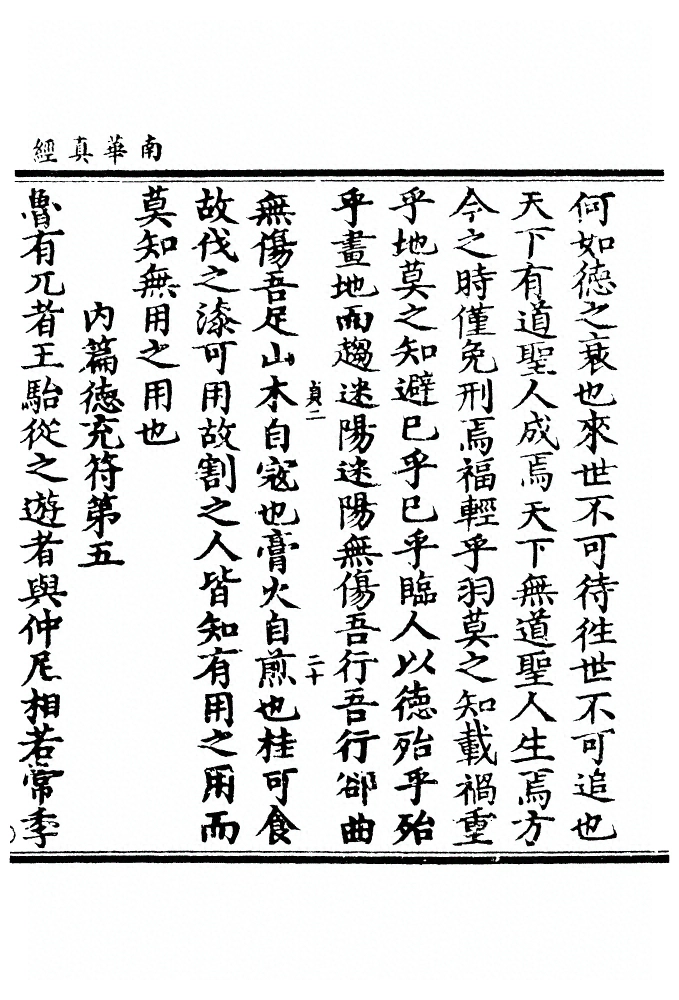 南華真經
何如德之衰也來世不可待往世不可追也
天下有道聖人成焉天下無道聖人生焉方
今之時僅免刑焉福輕乎羽莫之知載禍重
乎地莫之知避已乎已乎臨人以德殆乎殆
乎畫地而趨迷陽迷陽無傷吾行吾行郤曲
貞二
二十
無傷吾足山木自寇也膏火自煎也桂可食
故伐之漆可用故割之人皆知有用之用而
莫知無用之用也
内篇德充符第五
魯有兀者王駘從之遊者與仲尼相若常季